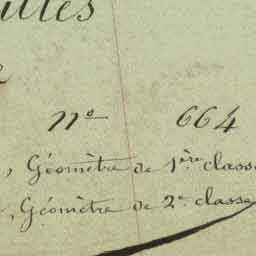 nº 664
, Géomètre de 1ère classe
, Géomètre de 2e classe